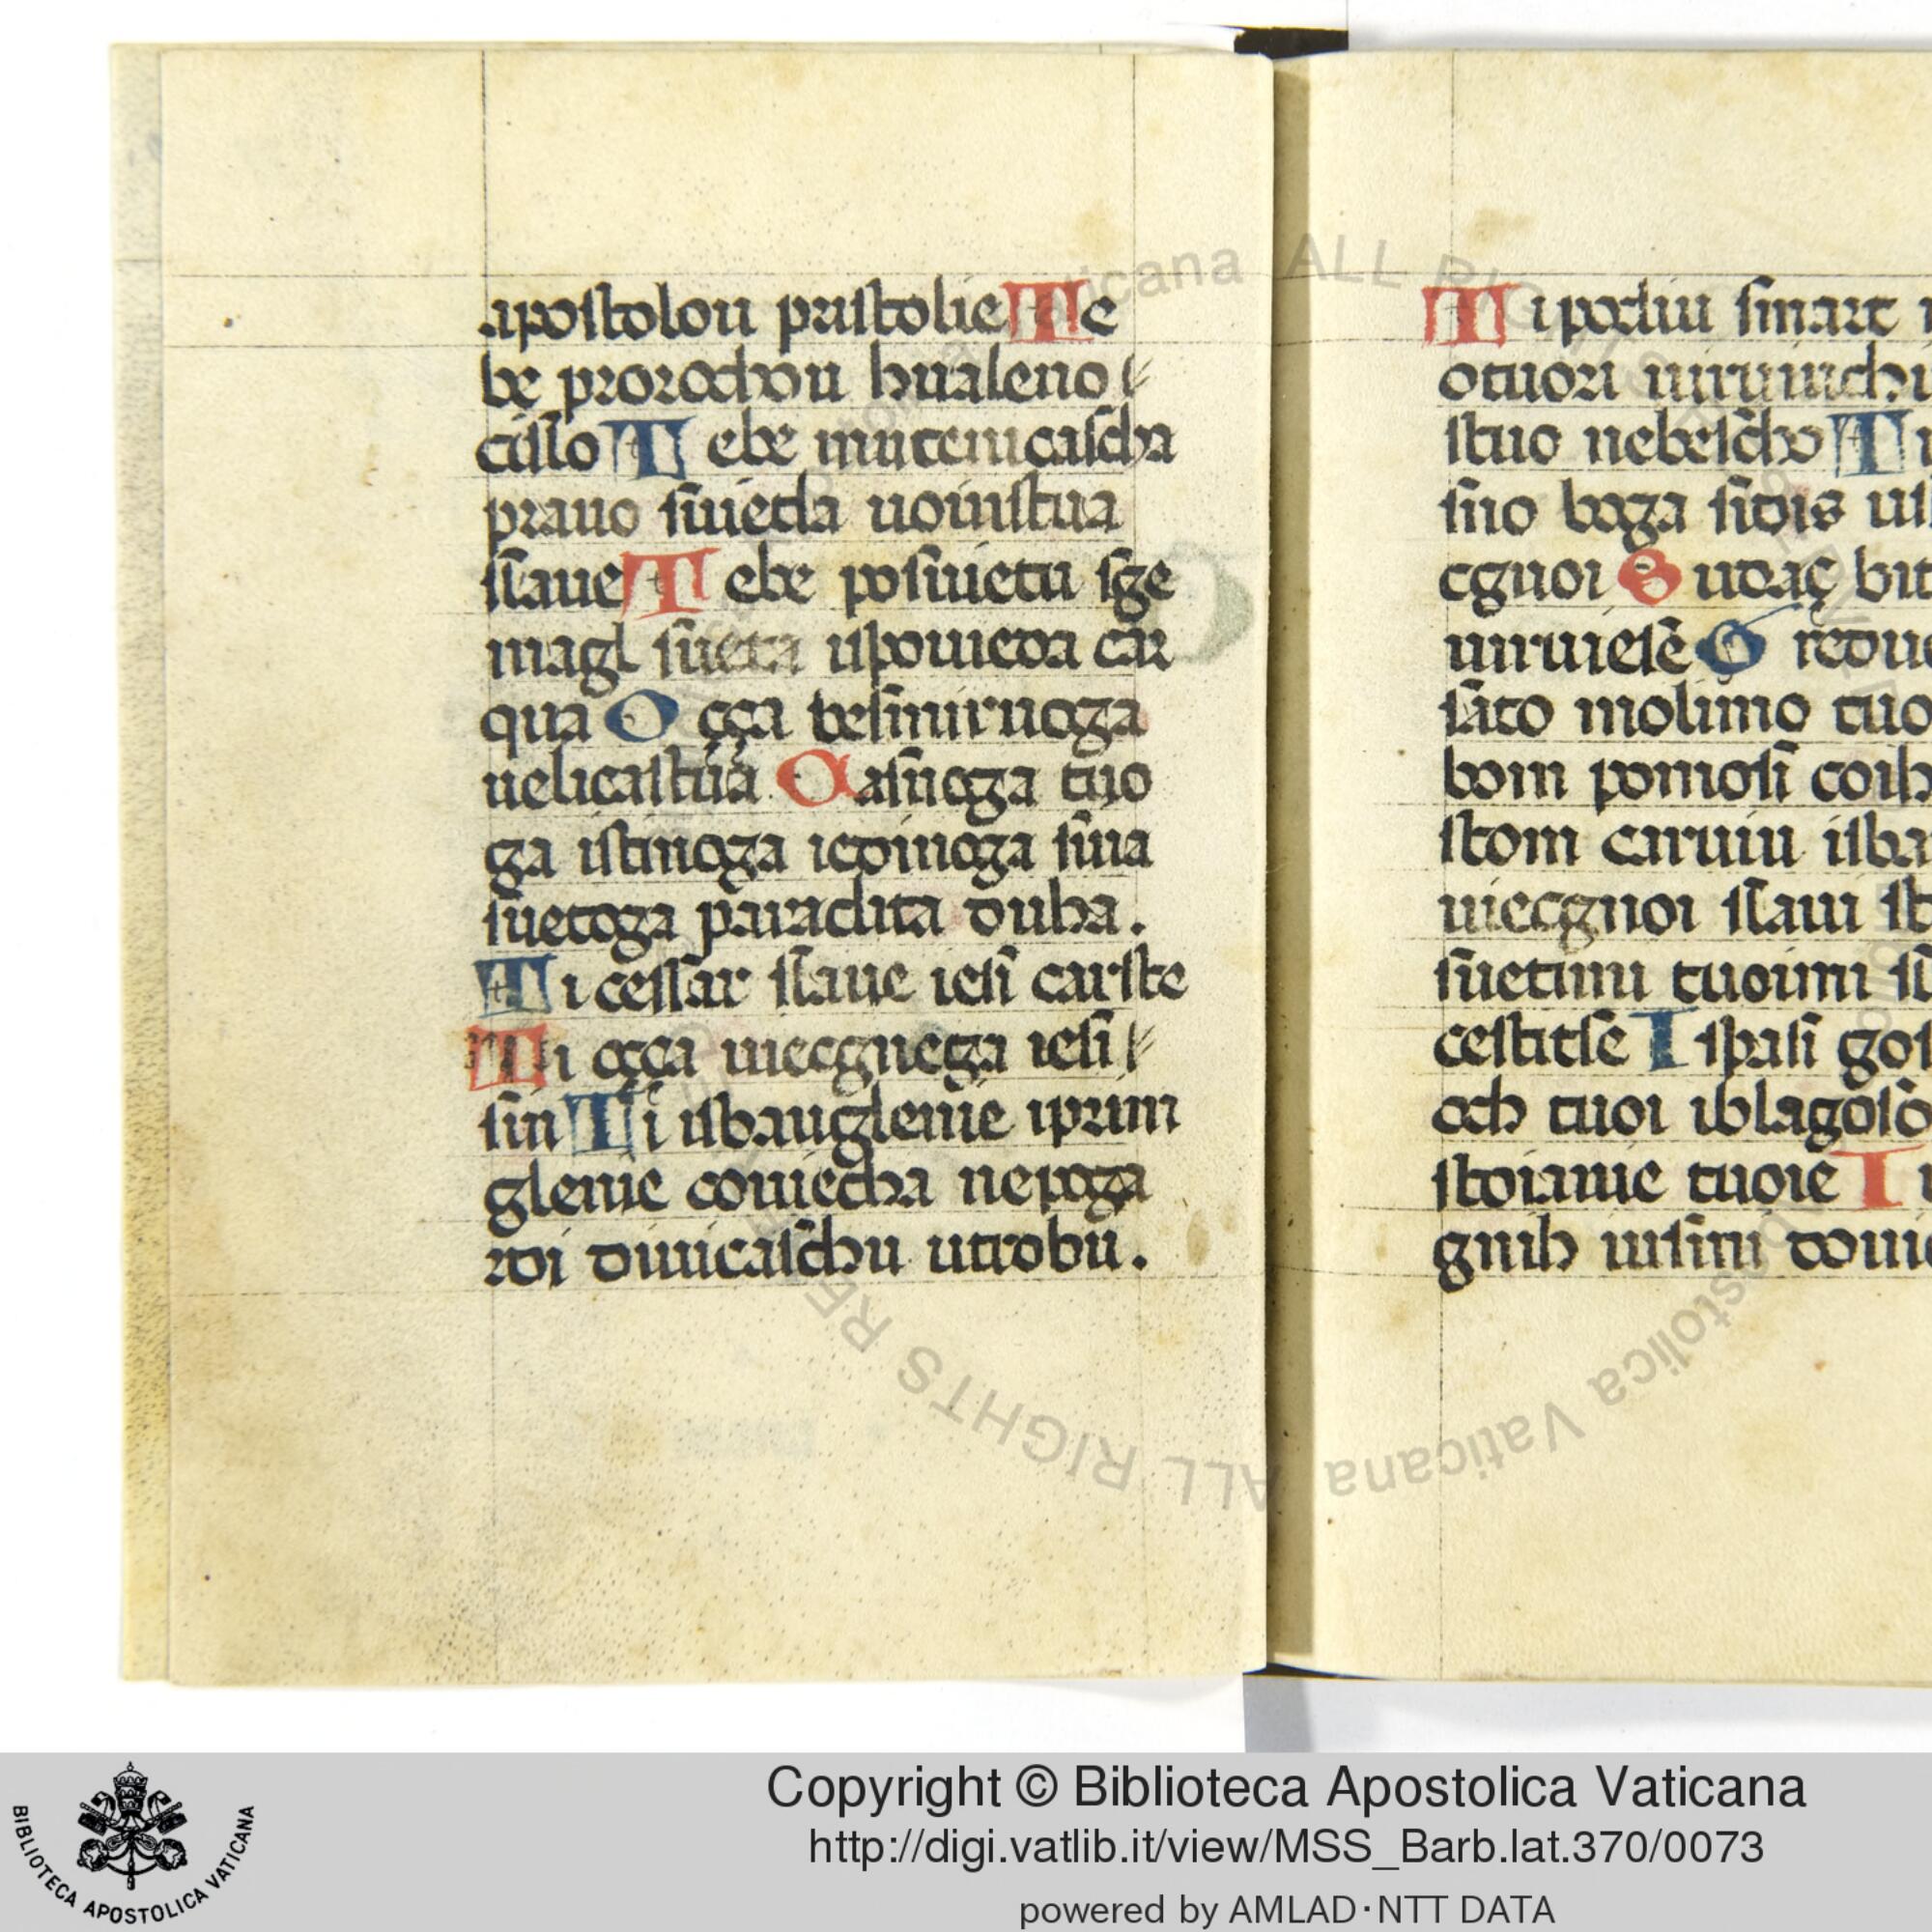 apostolou pristolie Te
be prorochou hualeno
cislo Tebe mucenicascha
prauo sujeda uoiuistua
slaue Tebe posuietu sge
magl sueta ispouieda car
qua Occa besmiruoga
uelicastua Oasnoga tuo
ga istinoga iedinoga sina
suetoga paraclita duha.
Ti cessar slaue iesi carste
Ti occa uiecgnega iesi
sin Ti isbauglenie iprim
glenie couiecha nepoga
rdi diuicaschu utrobu.
Ti podiu smart
otuori uiruuichi
stuo nebescho Ti
sno boga sidis
cgnoi Sudac
uiruiese
molimo tuo
bom pomosi
stom caruiu isba
uiecgnoi slaui
suetimi tuoimi
cestitse I spasi gos
och tuoi iblagoso
stoianie tuoie I
gnih uisini
Copyright © Biblioteca Apostolica Vaticana
http://digi.vatlib.it/view/MSS_Barb.lat.370/0073
powered by AMLAD·NTT DATA
BIBLIOTECA APOSTOLICA VATICANA